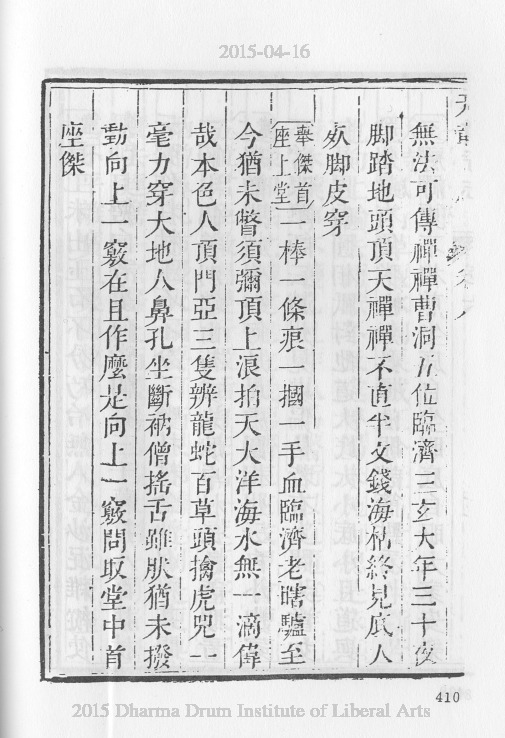 2015-04-16
無法可傳禪禪曹洞五位臨濟三玄大年三十夜
脚踏地頭頂天禪禪不直半文錢海枯終見底人
死脚皮穿
舉傑首座上堂一棒一條痕一摑一手血臨濟老瞎驢至
今猶未瞥須彌頂上浪拍天大洋海水無一滴偉
哉本色人頂門亞三隻辨龍蛇百草頭擒虎兕一
毫力穿大地人鼻孔坐斷衲僧搖舌雖然猶未撥
動向上一竅在且作麼是向上一竅問取堂中首
座傑
410
2015 Dharma Drum Institute of Liberal Arts